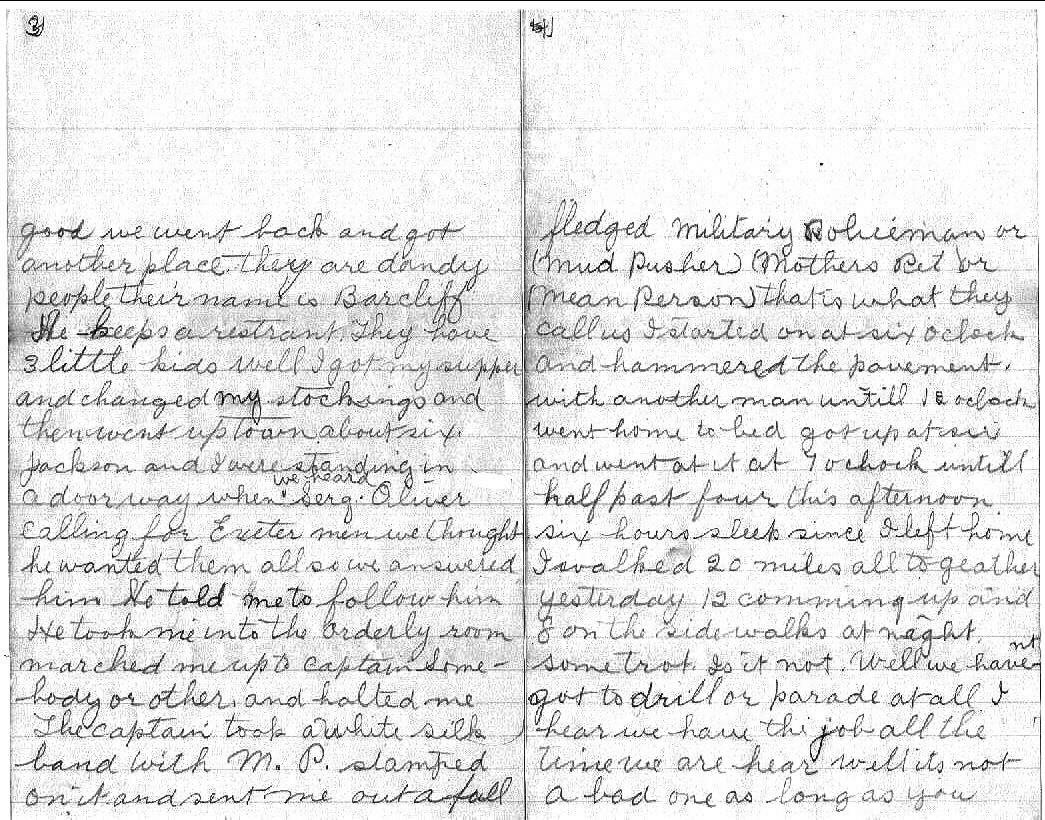 3
good we went back and got
another place. they are dandy
people their name is Barcliff
He keeps a restrant. They have
3 little kids well I got my supper
and changed my stockings and
then went up town about six.
Jackson and I were standing in
a door way when we heard Serg. Oliver
calling for Exeter men we thought
he wanted them all so we answered
him He told me to follow him
He took me into the orderly room
marched me up to captain some-
body or other, and halted me
The captain took a white silk
band with M. P. stamped
on it and sent me out a full
4
fledged Military Policeman or
(Mud Pusher) (Mothers Pet or
(Mean Person) that is what they
call us I started on at six oclock
and hammered the pavement.
with another man untill 12 oclock
went home to bed got up at six
and went at it at 7 ochock untill
half past four this afternoon
six hours sleep since I left home
I walked 20 miles all to geather
yesterday 12 comming up and
8 on the side walks at naght.
some trot. Is it not. Well we havent
got to drill or parade at all. I
hear we have thi job all the
time we are hear well its not
a bad one as long as you